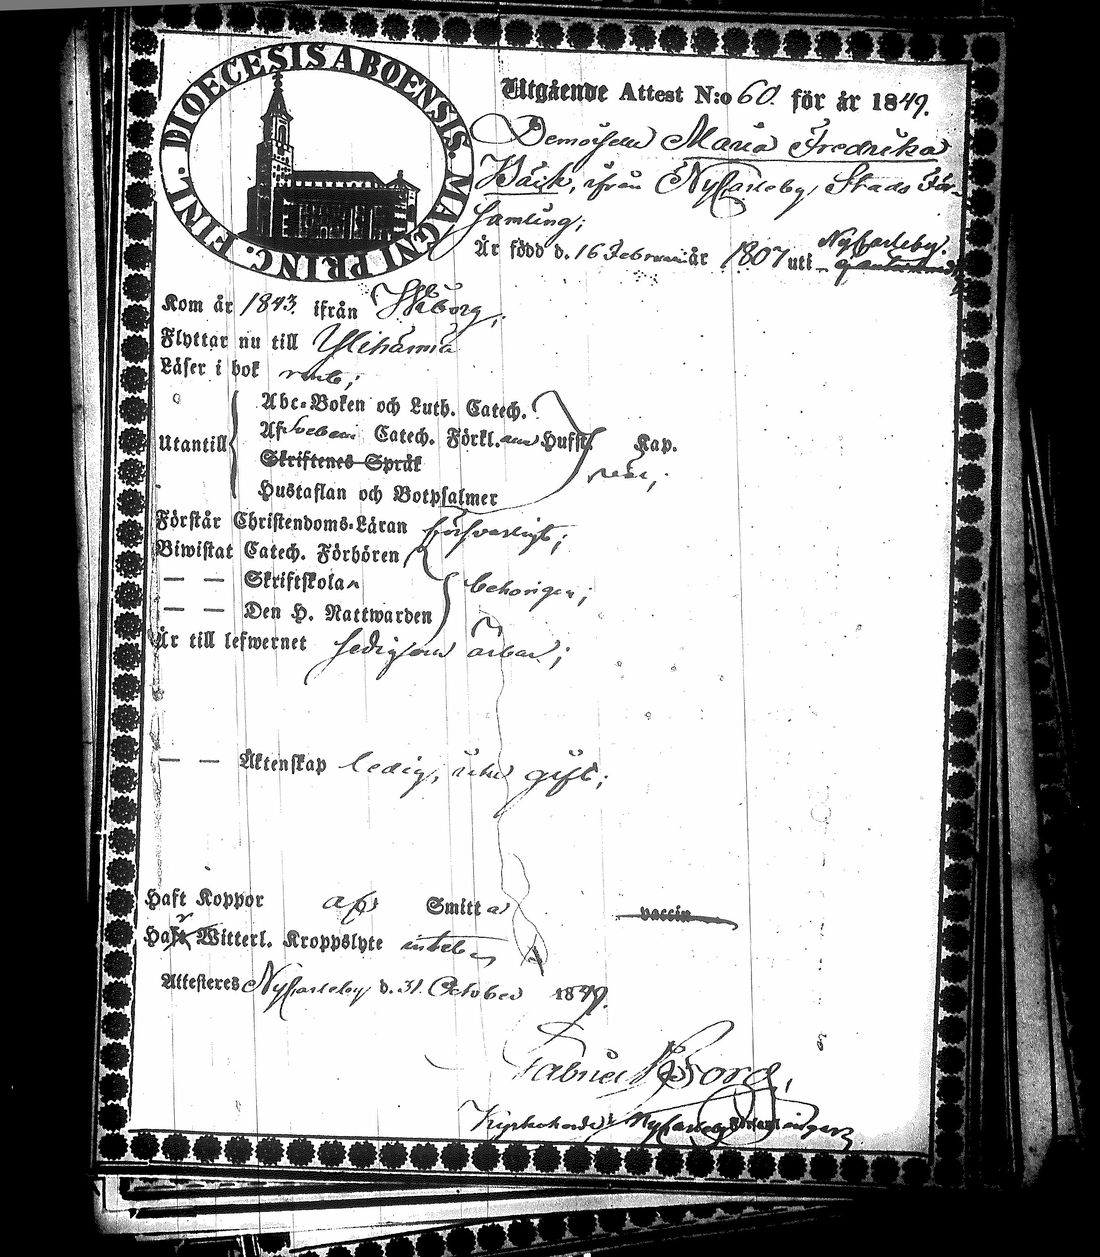 DIOECESIS ABOENSIS. MAGNI PRINC. FINL.
Utgående Attest N:o 60. för år 1849.
Demoiselle Maria Fredrika
Bäck, ifrån Nykarleby Stads För-
samling;
Är född d. 16 Februari år 1807 uti Nykarleby
Kom år 1843. ifrån Wiborg;
Flyttar nu till Ylihärmä
Läser i bok rent;
Utantill
Abc-Boken och Luth. Catech.
Af Svebeni Catech. Förkl. Husst. Kap.
Skriftenes Språk
Hustaflan och Botpsalmer
Förstår Christendoms-Läran försvarligt;
Biwistat Catech. Förhören
— — Skriftskolan behörigen;
— — Den H. Nattwarden
Är till lefwernet sedig och ärbar;
— — Äktenskap ledig, utur gift;
Haft Koppor af Smitta vaccin
Haft Witterl. Kroppslyte
Attesteres Nykarleby d. 31 October 1849.
Gabriel Borg,
Kyrkoherde i Nykarleby Församlingar